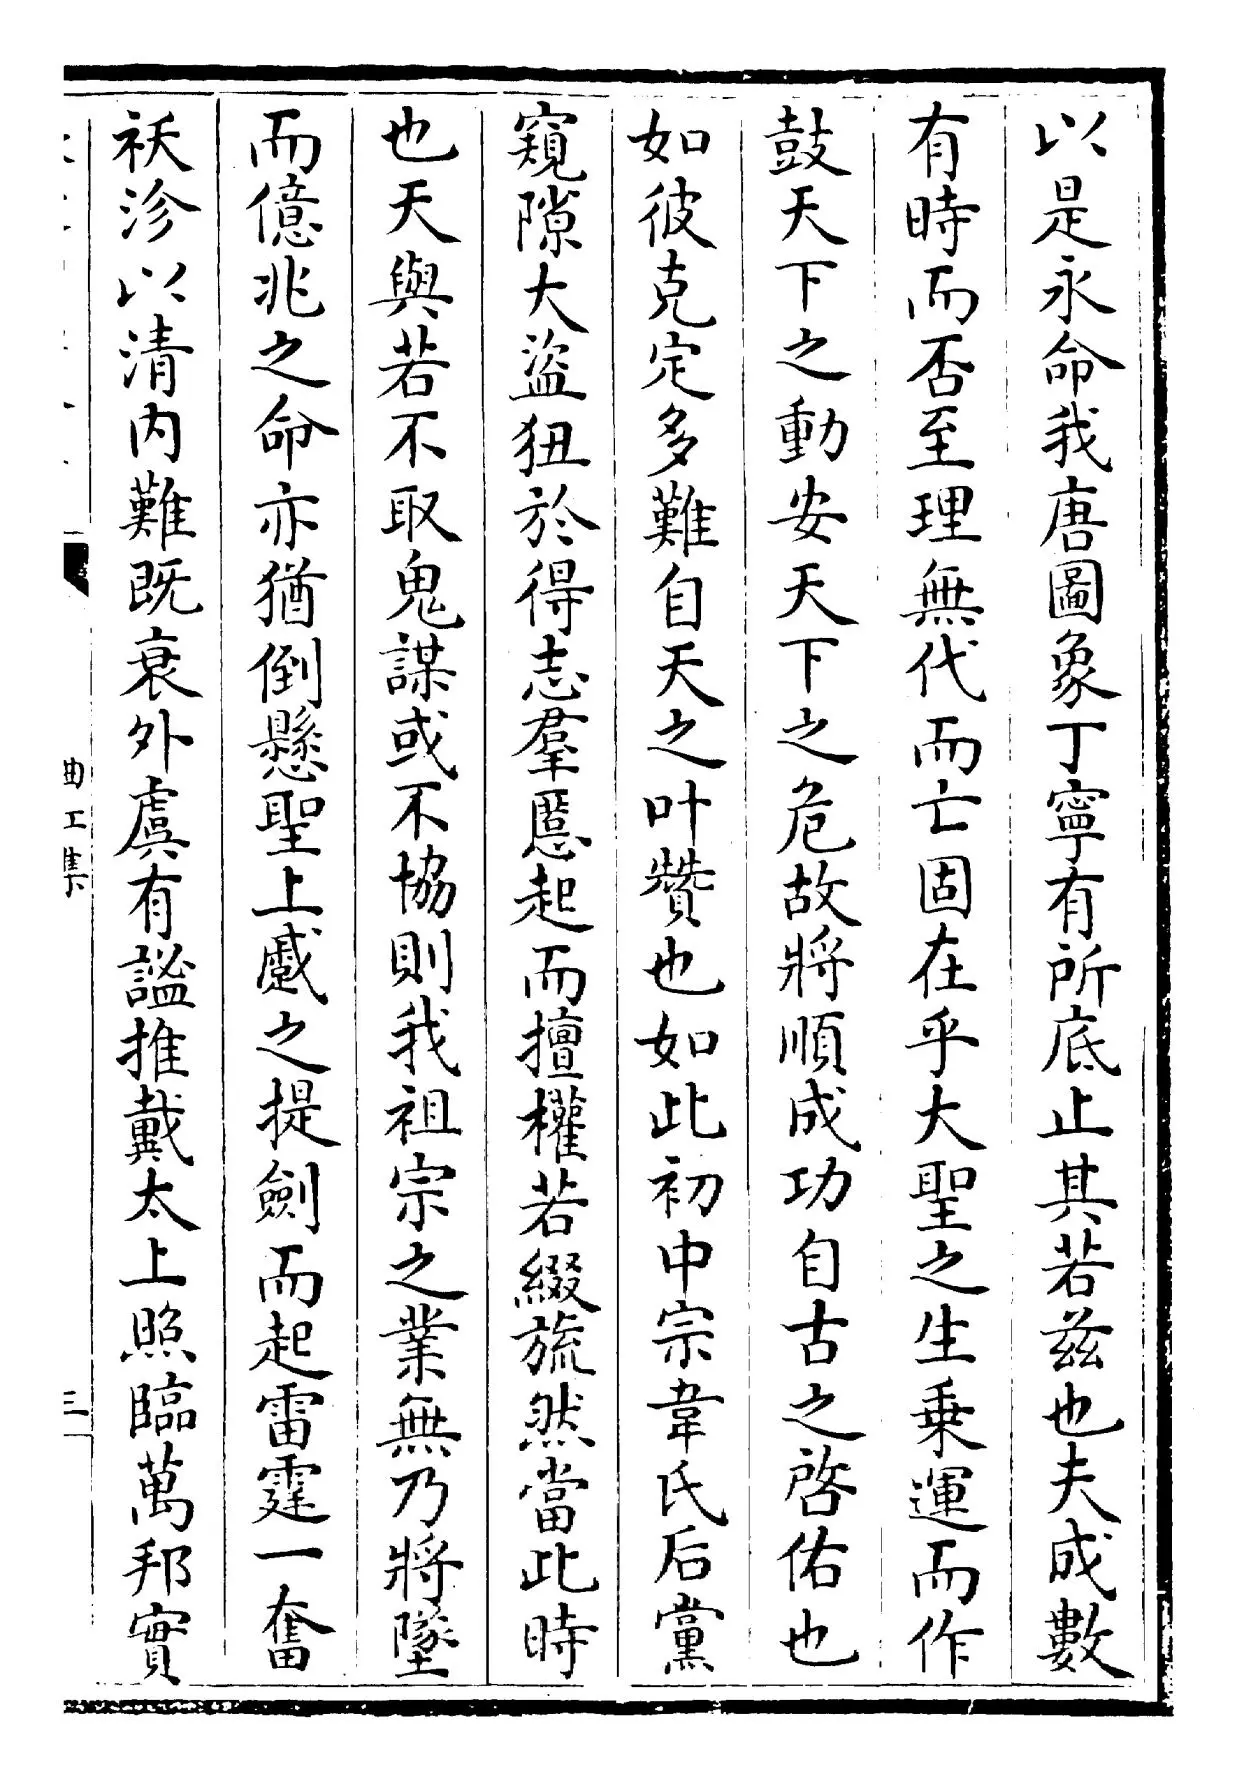 以是永命我唐圖象丁寧有所底止其若兹也夫成數
有時而否至理無代而亡固在乎大聖之生乗運而作
鼓天下之動安天下之危故将順成功自古之啓佑也
如彼克定多難自天之叶賛也如此初中宗韋氏后黨
窺隙大盜狃於得志羣慝起而擅權若綴旒然當此時
也天與若不取鬼謀或不協則我祖宗之業無乃將墜
而億兆之命亦猶倒懸聖上慼之提劍而起雷霆一奮
祅沴以清内難既衰外虞有謐推戴太上照臨萬邦實
曲江集
三